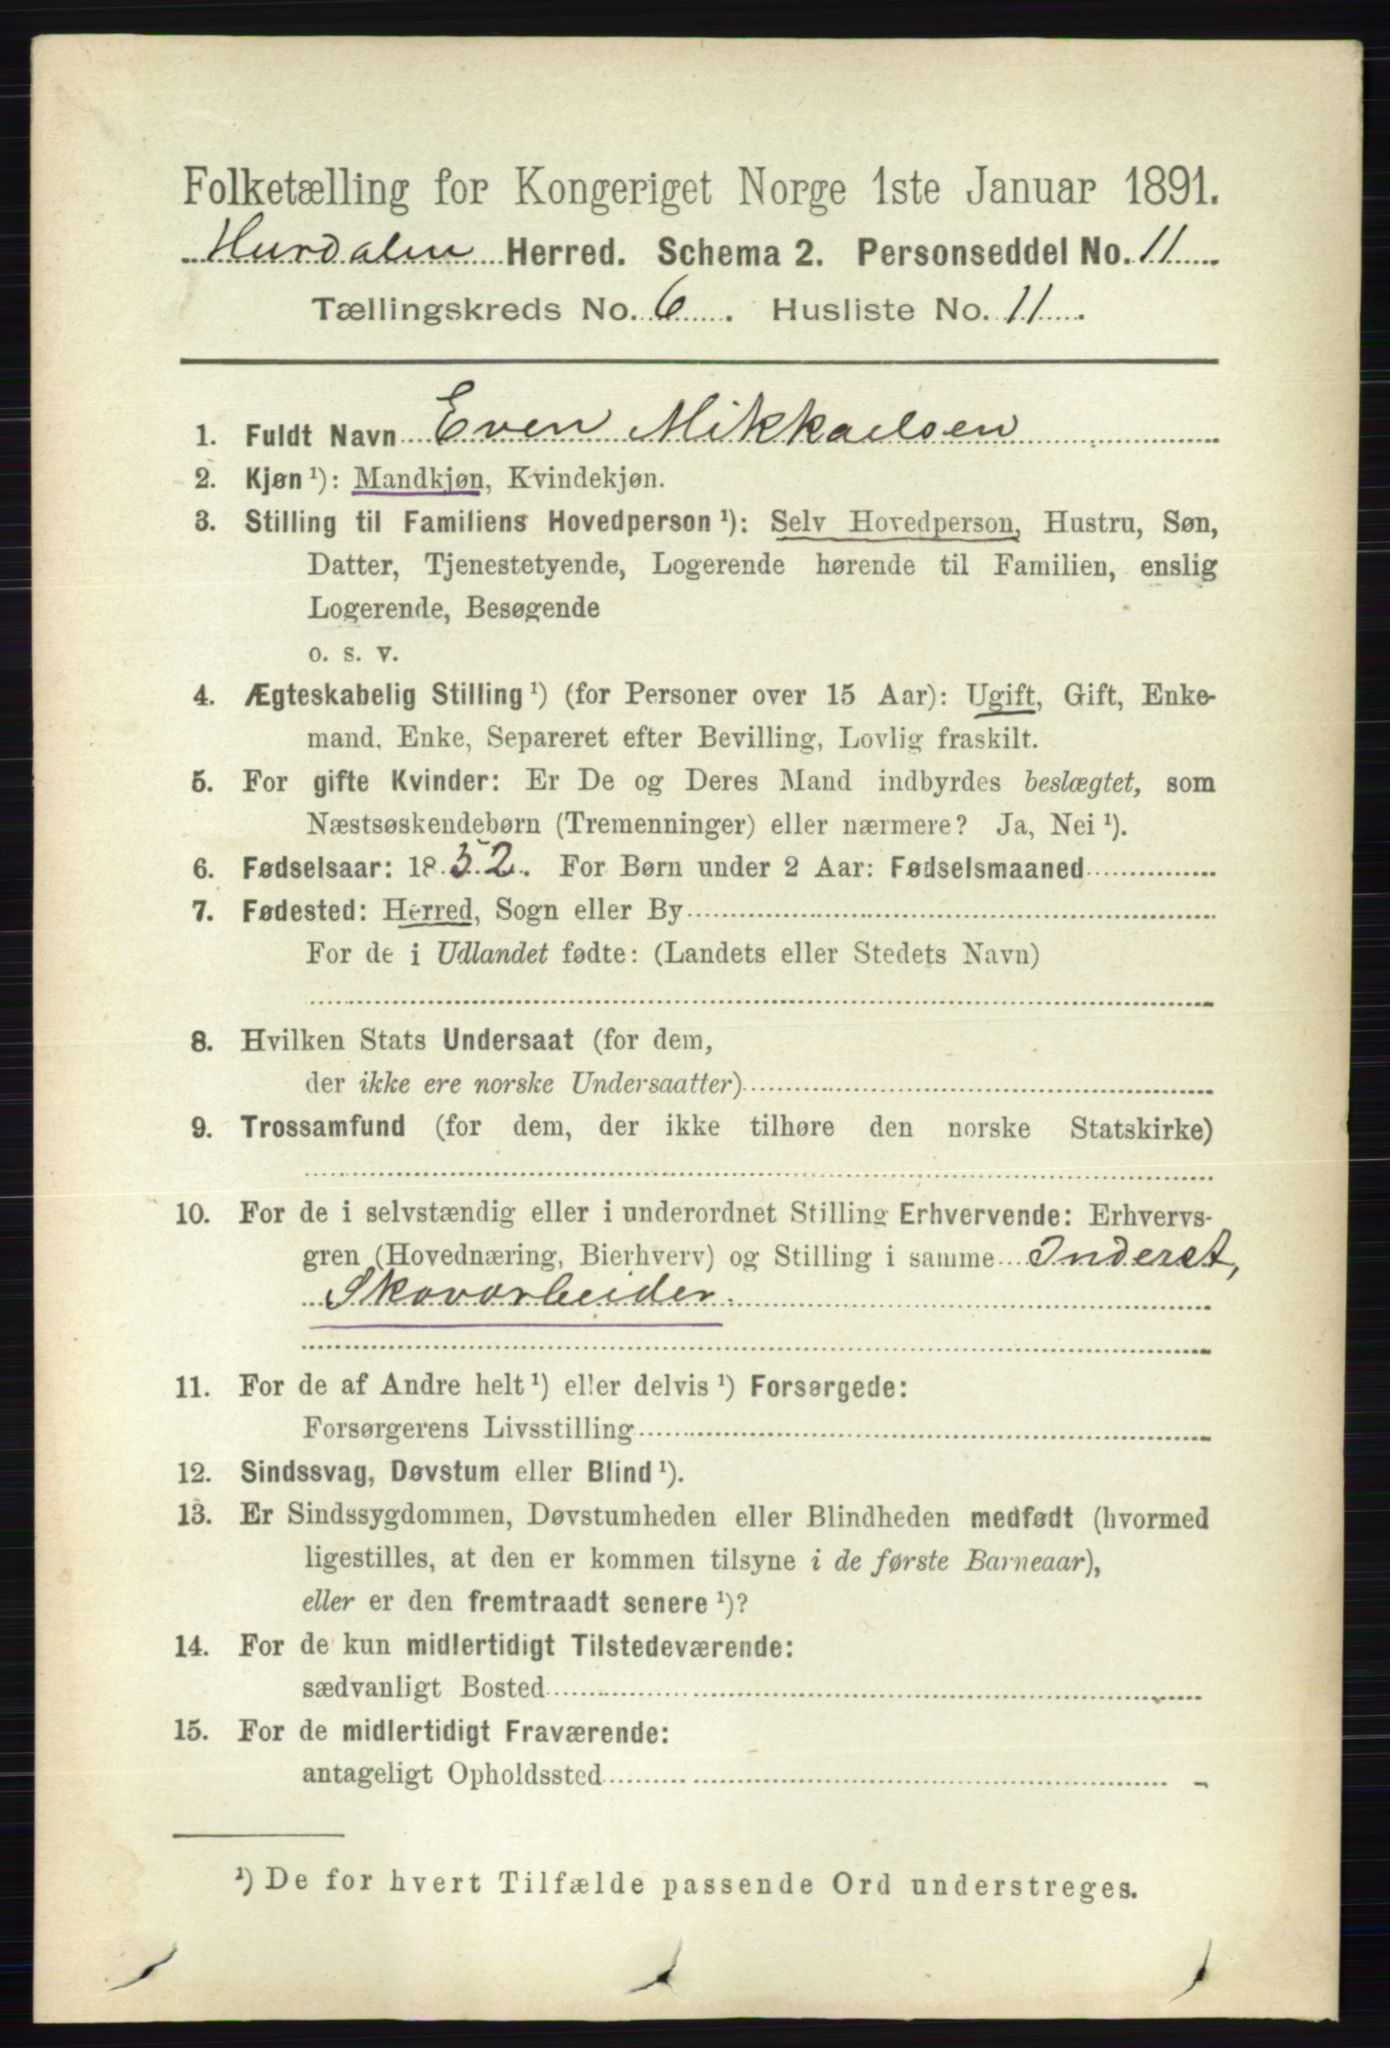 Folketælling for Kongeriget Norge 1ste Januar 1891.
Hurdalen Herred. Schema 2. Personseddel No. 11
Tællingskreds No. 6. Husliste No. 11.
1. Fuldt Navn Even Mikkaelsen
2. Kjøn ¹): Mandkjøn, Kvindekjøn.
3. Stilling til Familiens Hovedperson ¹): Selv Hovedperson, Hustru, Søn,
Datter, Tjenestetyende, Logerende hørende til Familien, enslig
Logerende, Besøgende
o. s. v.
4. Ægteskabelig Stilling ¹) (for Personer over 15 Aar): Ugift, Gift, Enke-
mand, Enke, Separeret efter Bevilling, Lovlig fraskilt.
5. For gifte Kvinder: Er De og Deres Mand indbyrdes beslægtet, som
Næstsøskendebørn (Tremenninger) eller nærmere? Ja, Nei ¹).
6. Fødselsaar: 1852. For Børn under 2 Aar: Fødselsmaaned
7. Fødested: Herred, Sogn eller By
For de i Udlandet fødte: (Landets eller Stedets Navn)
8. Hvilken Stats Undersaat (for dem,
der ikke ere norske Undersaatter)
9. Trossamfund (for dem, der ikke tilhøre den norske Statskirke)
10. For de i selvstændig eller i underordnet Stilling Erhvervende: Erhvervs-
gren (Hovednæring, Bierhverv) og Stilling i samme Inderst,
Skovarbeider.
11. For de af Andre helt ¹) eller delvis ¹) Forsørgede:
Forsørgerens Livsstilling
12. Sindssvag, Døvstum eller Blind ¹).
13. Er Sindssygdommen, Døvstumheden eller Blindheden medfødt (hvormed
ligestilles, at den er kommen tilsyne i de første Barneaar),
eller er den fremtraadt senere ¹)?
14. For de kun midlertidigt Tilstedeværende:
sædvanligt Bosted
15. For de midlertidigt Fraværende:
antageligt Opholdssted
¹) De for hvert Tilfælde passende Ord understreges.